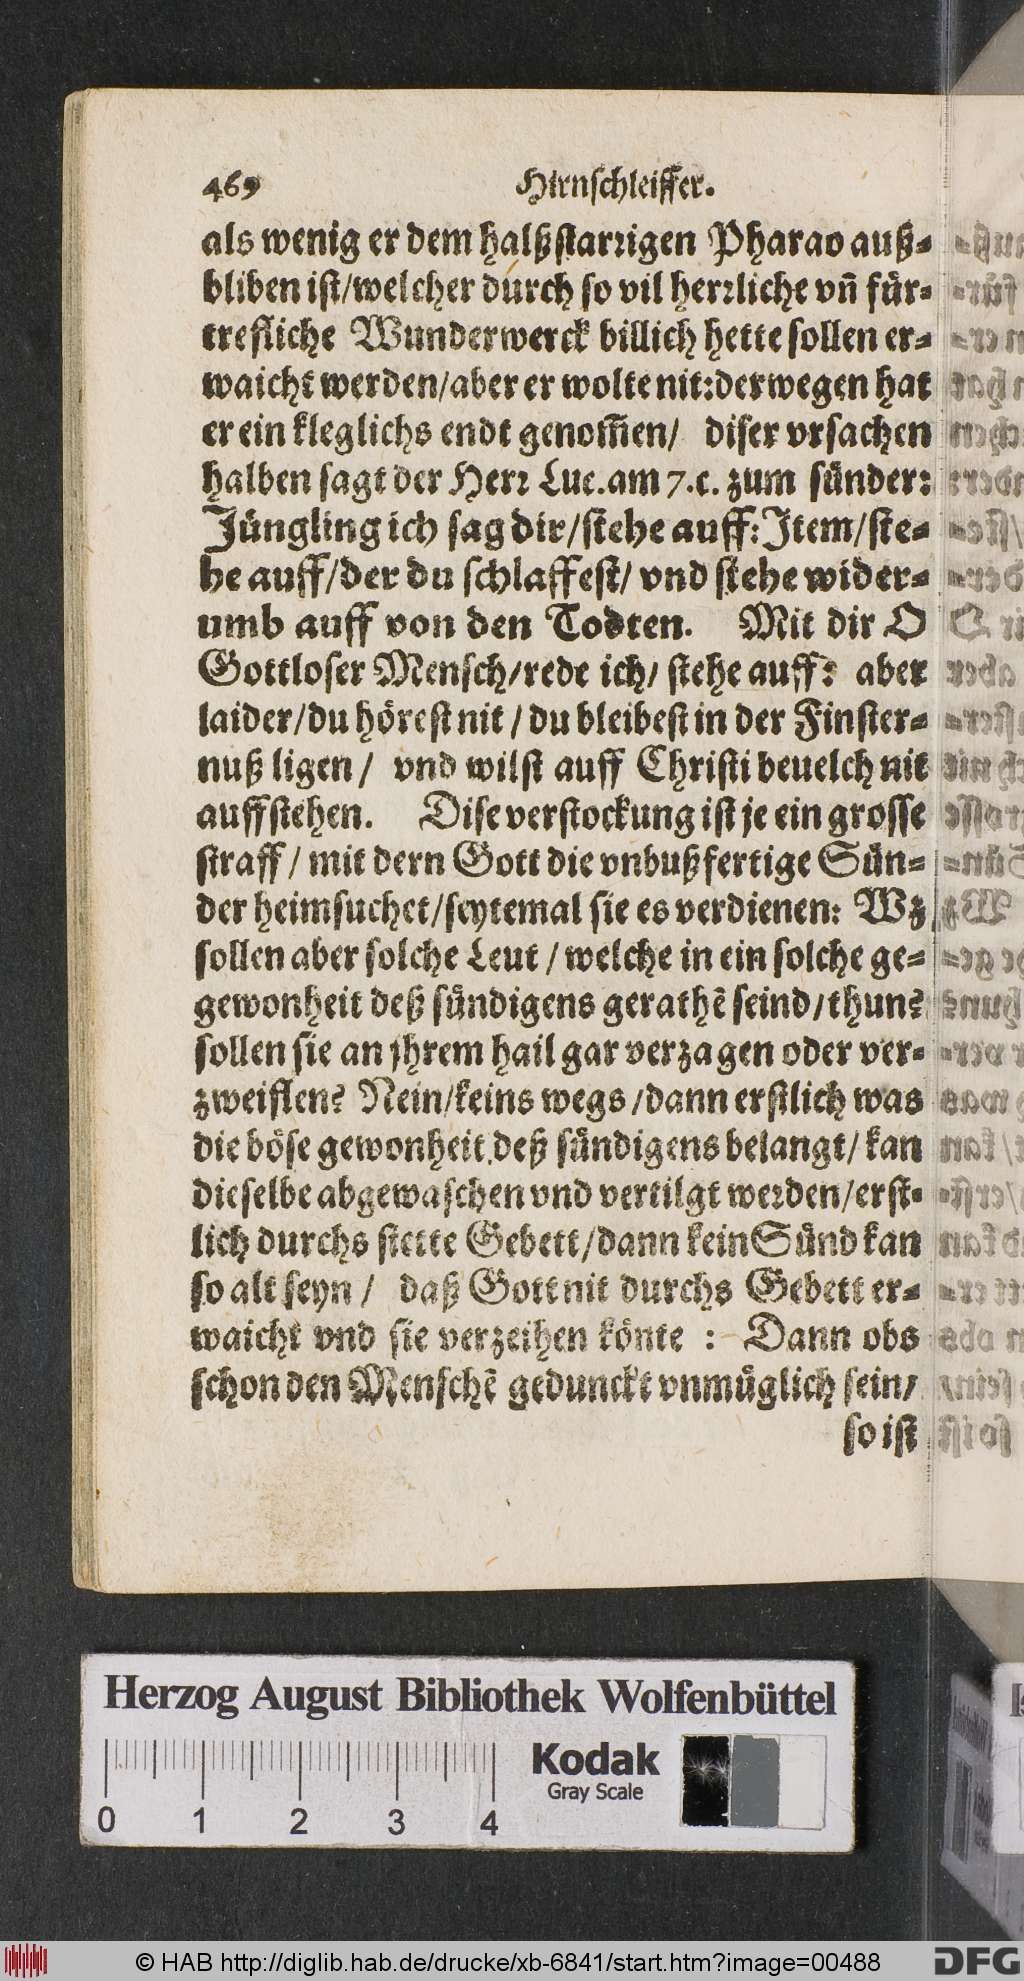 469 Hirnschleiffer.
als wenig er dem halßstarrigen Pharao auß-
bliben ist/welcher durch so vil herrliche vñ für-
trefliche Wunderwerck billich hette sollen er-
waicht werden/aber er wolte nit:derwegen hat
er ein kleglichs endt genom̃en/ diser vrsachen
halben sagt der Herr Luc.am 7.c. zum sünder:
Jüngling ich sag dir/stehe auff: Item/ste-
he auff/der du schlaffest/ vnd stehe wider-
umb auff von den Todten. Mit dir O
Gottloser Mensch/rede ich/ stehe auff: aber
laider/du hörest nit / du bleibest in der Finster-
nuß ligen / vnd wilst auff Christi beuelch nit
auffstehen. Dise verstockung ist je ein grosse
straff / mit dern Gott die vnbußfertige Sün-
der heimsuchet/seytemal sie es verdienen: Wz
sollen aber solche Leut / welche in ein solche ge-
gewonheit deß sündigens gerathẽ seind/thun?
sollen sie an jhrem hail gar verzagen oder ver-
zweiflen? Nein/keins wegs /dann erstlich was
die böse gewonheit deß sündigens belangt/ kan
dieselbe abgewaschen vnd vertilgt werden/erst-
lich durchs stette Gebett/dann kein Sünd kan
so alt seyn / daß Gott nit durchs Gebett er-
waicht vnd sie verzeihen könte : Dann obs
schon den Menschẽ gedunckt vnmüglich sein/
so ist
Herzog August Bibliothek Wolfenbüttel
Kodak
Gray Scale
0 1 2 3 4
© HAB http://diglib.hab.de/drucke/xb-6841/start.htm?image=00488
DFG